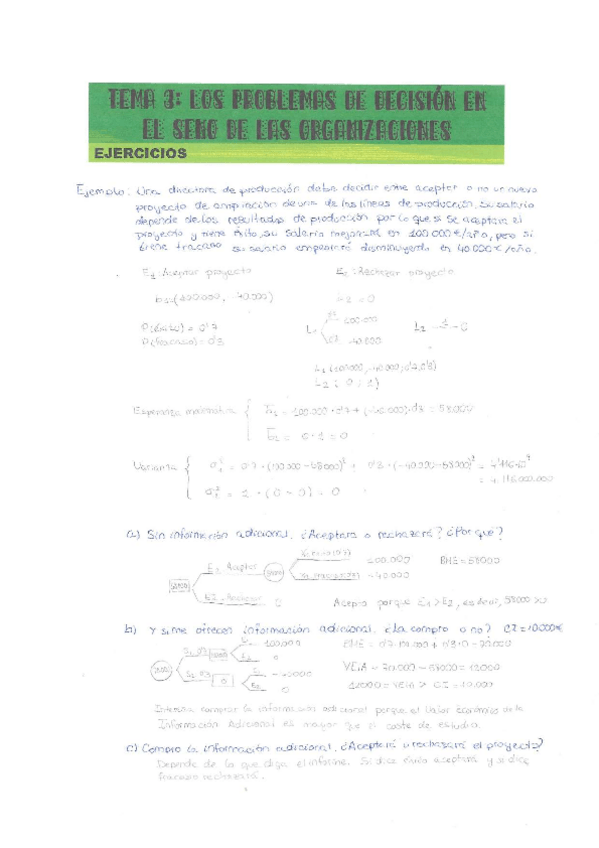 TEMA 3: LOS PROBLEMAS DE DECISIÓN EN
EL SENO DE LAS ORGANIZACIONES
EJERCICIOS
Ejemplo: Una directora de producción debe decidir entre aceptar o no un nuevo
proyecto de ampliación de una de las líneas de producción, su salario
depende de los resultados de producción por lo que si se aceptara el
proyecto y tiene éxito, su salario mejorará en 100.000€/año, pero si
tiene fracaso su salario empeorará disminuyendo en 40.000€/año.
E1: Aceptar proyecto E2: Rechazar proyecto
(100.000, -40.000) = 0
P(éxito) = 0'7
P(fracaso) = 0'3
L1 0'7 100.000
0'3 -40.000
L2 1 0
L1 (100.000, -40.000; 0'7, 0'3)
L2 (0; 1)
Esperanza matemática = 100.000 · 0'7 + (-40.000) · 0'3 = 58.000
= 0 · 1 = 0
Varianza = 0'7 · (100.000 - 58000)² + 0'3 · (-40.000 - 58000)² =
= 4.116.000.000
= 1 · (0 - 0) = 0
a) Sin información adicional, ¿Aceptará o rechazará? ¿Por qué?
E1 Aceptar 100.000 BME = 58000
-40.000
E2 Rechazar 0
Acepto porque E1 > E2, es decir, 58000 > 0
b) Y si me ofrecen información adicional, ¿la compro o no? CI = 10.000€
E1 100.000
E2 0
E1 -40000
E2 0
BME = 0'7 · 100.000 + 0'3 · 0 = 70.000
VEIA = 70.000 - 58000 = 12000
12000 = VEIA > CI = 10.000
Interesa comprar la información adicional porque el Valor Económico de la
Información Adicional es mayor que el coste de estudio.
c) Compro la información adicional, ¿Aceptará o rechazará el proyecto?
Depende de lo que diga el informe. Si dice éxito aceptará y si dice
fracaso rechazará.